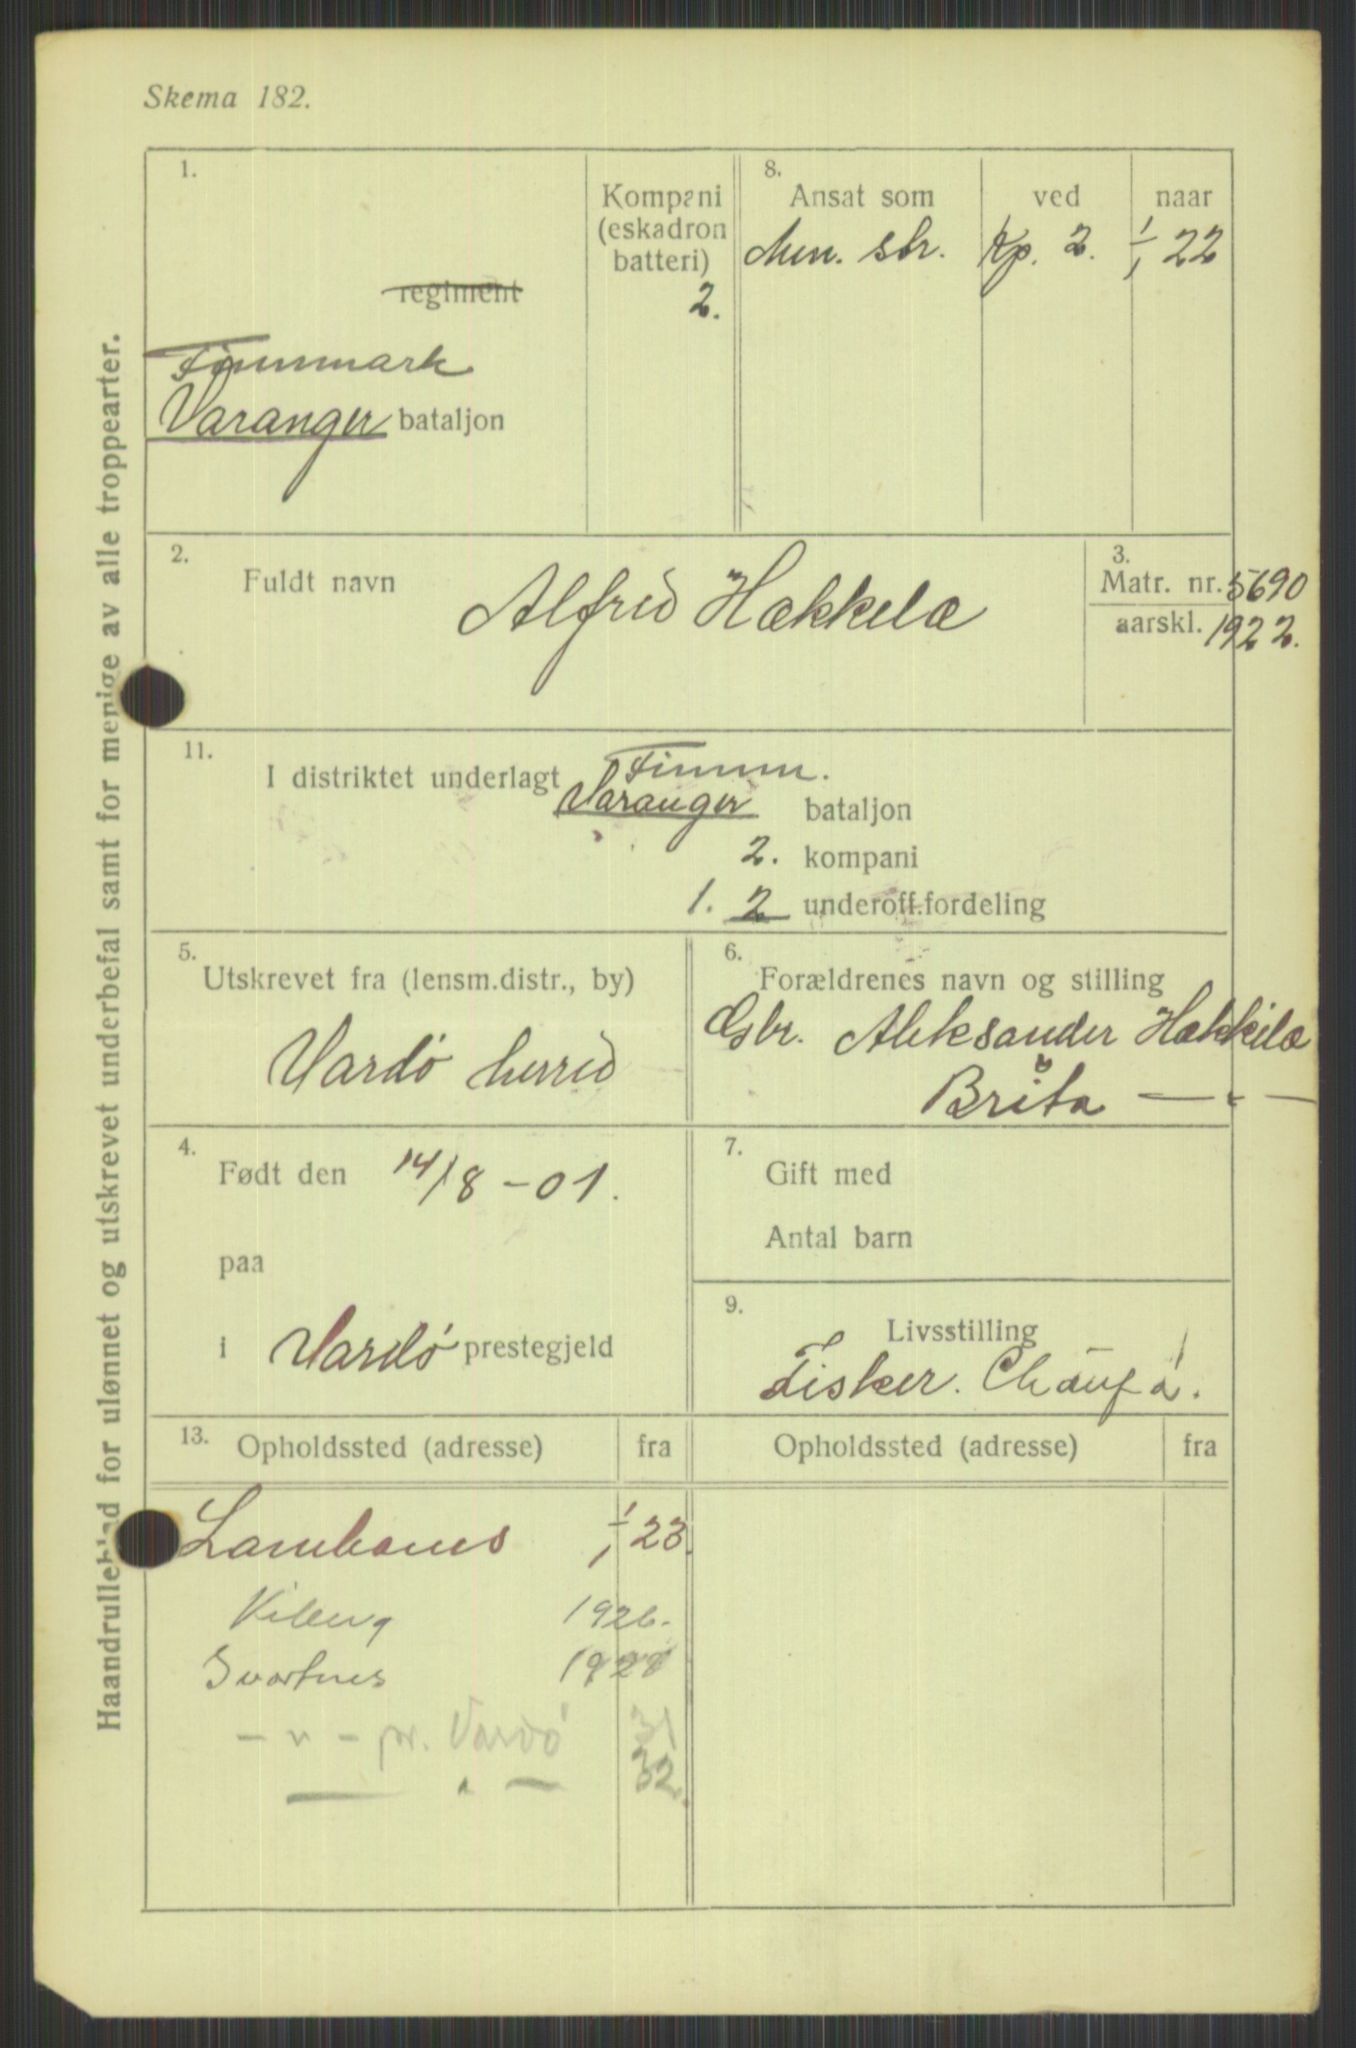 Skema 182.
Haandrulleblad for ulønnet og utskrevet underbefal samt for menige av alle troppearter.
1.
regiment
Finnmark
Varanger bataljon
Kompani
(eskadron
batteri)
2.
8.
Ansat som ved naar
Men. str. Kp. 2. 1/1 22
2.
Fuldt navn Alfred Hækkelæ
3.
Matr. nr. 5690
aarskl. 1922.
11.
I distriktet underlagt Finnm.
Varanger bataljon
2. kompani
1. 2 underoff.fordeling
5.
Utskrevet fra (lensm.distr., by)
Vardö herred
6.
Forældrenes navn og stilling
Gbr. Aleksander Hækkilæ
Brita — " —
4.
Født den 14/8 - 01.
paa
i Vardö prestegjeld
7.
Gift med
Antal barn
9.
Livsstilling
Fisker.
13.
Opholdssted (adresse) fra Opholdssted (adresse) fra
1/1 23.
Kiberg 1926.
Svartnes
- " - pr. Vardö 31
— " — 32.